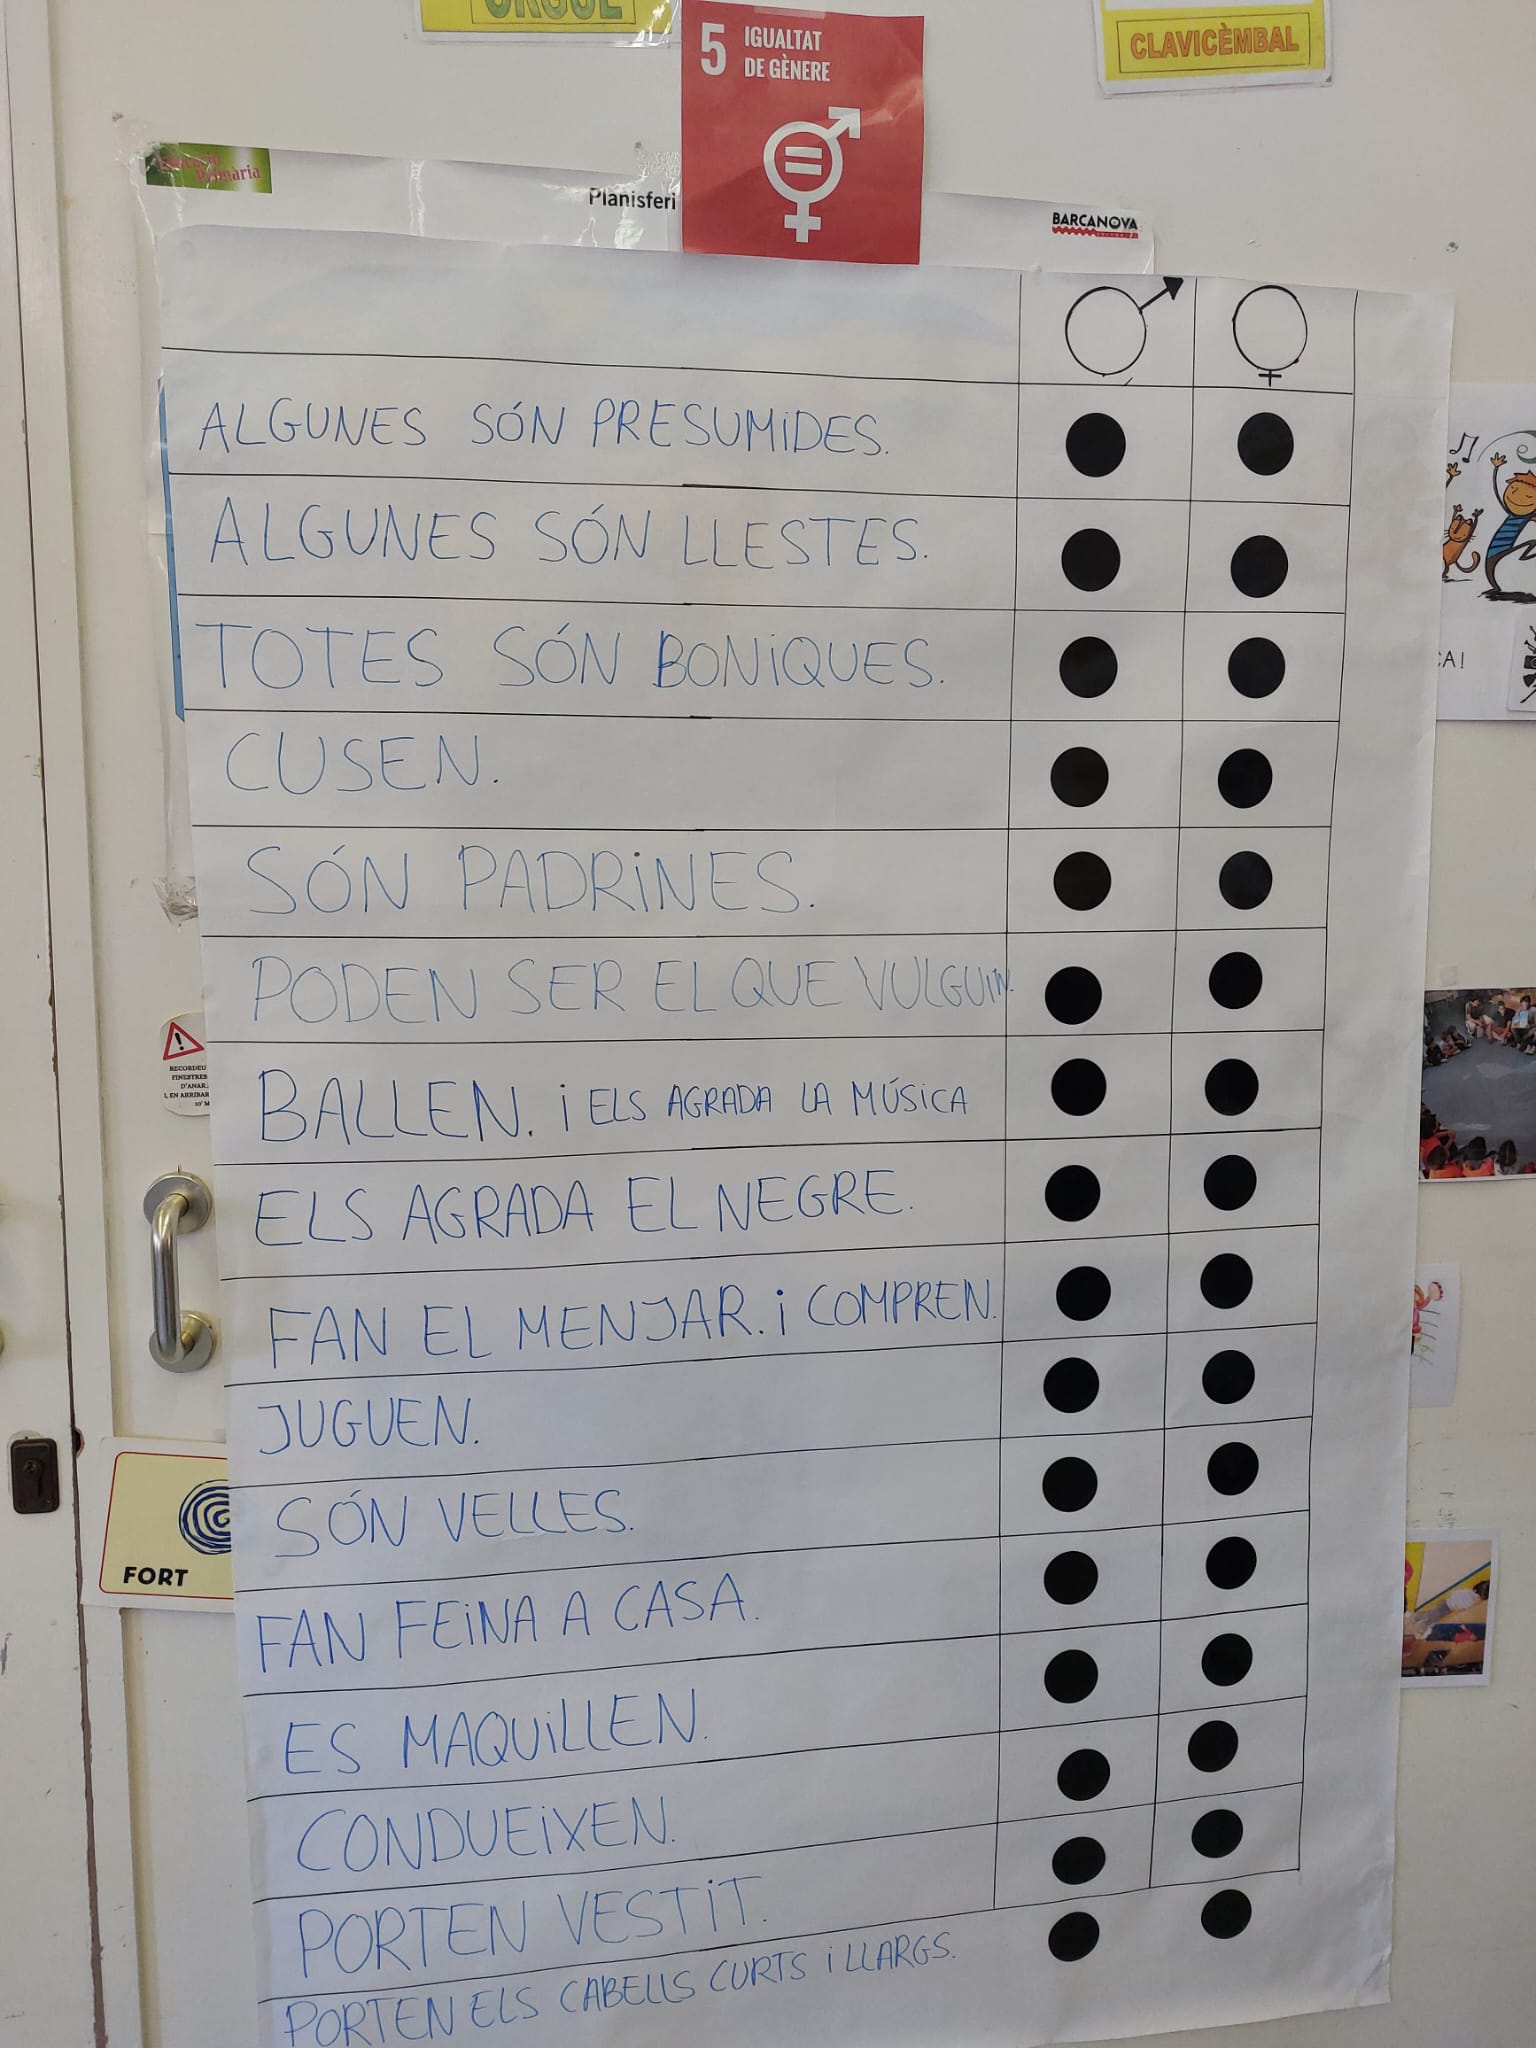 ORGUE
5 IGUALTAT
DE GÈNERE
CLAVICÈMBAL
Primaria
Planisferi
BARCANOVA
ALGUNES SÓN PRESUMIDES.
ALGUNES SÓN LLESTES.
TOTES SÓN BONIQUES.
CUSEN.
SÓN PADRINES.
PODEN SER EL QUE VULGUIN.
BALLEN. i ELS AGRADA LA MÚSICA
ELS AGRADA EL NEGRE.
FAN EL MENJAR. i COMPREN.
JUGUEN.
SÓN VELLES.
FAN FEINA A CASA.
ES MAQUILLEN.
CONDUEIXEN.
PORTEN VESTIT.
PORTEN ELS CABELLS CURTS i LLARGS.
CA!
RECORDEU
FINESTRES
D'ANAR
I, EN ARRIBAR
10' M
FORT